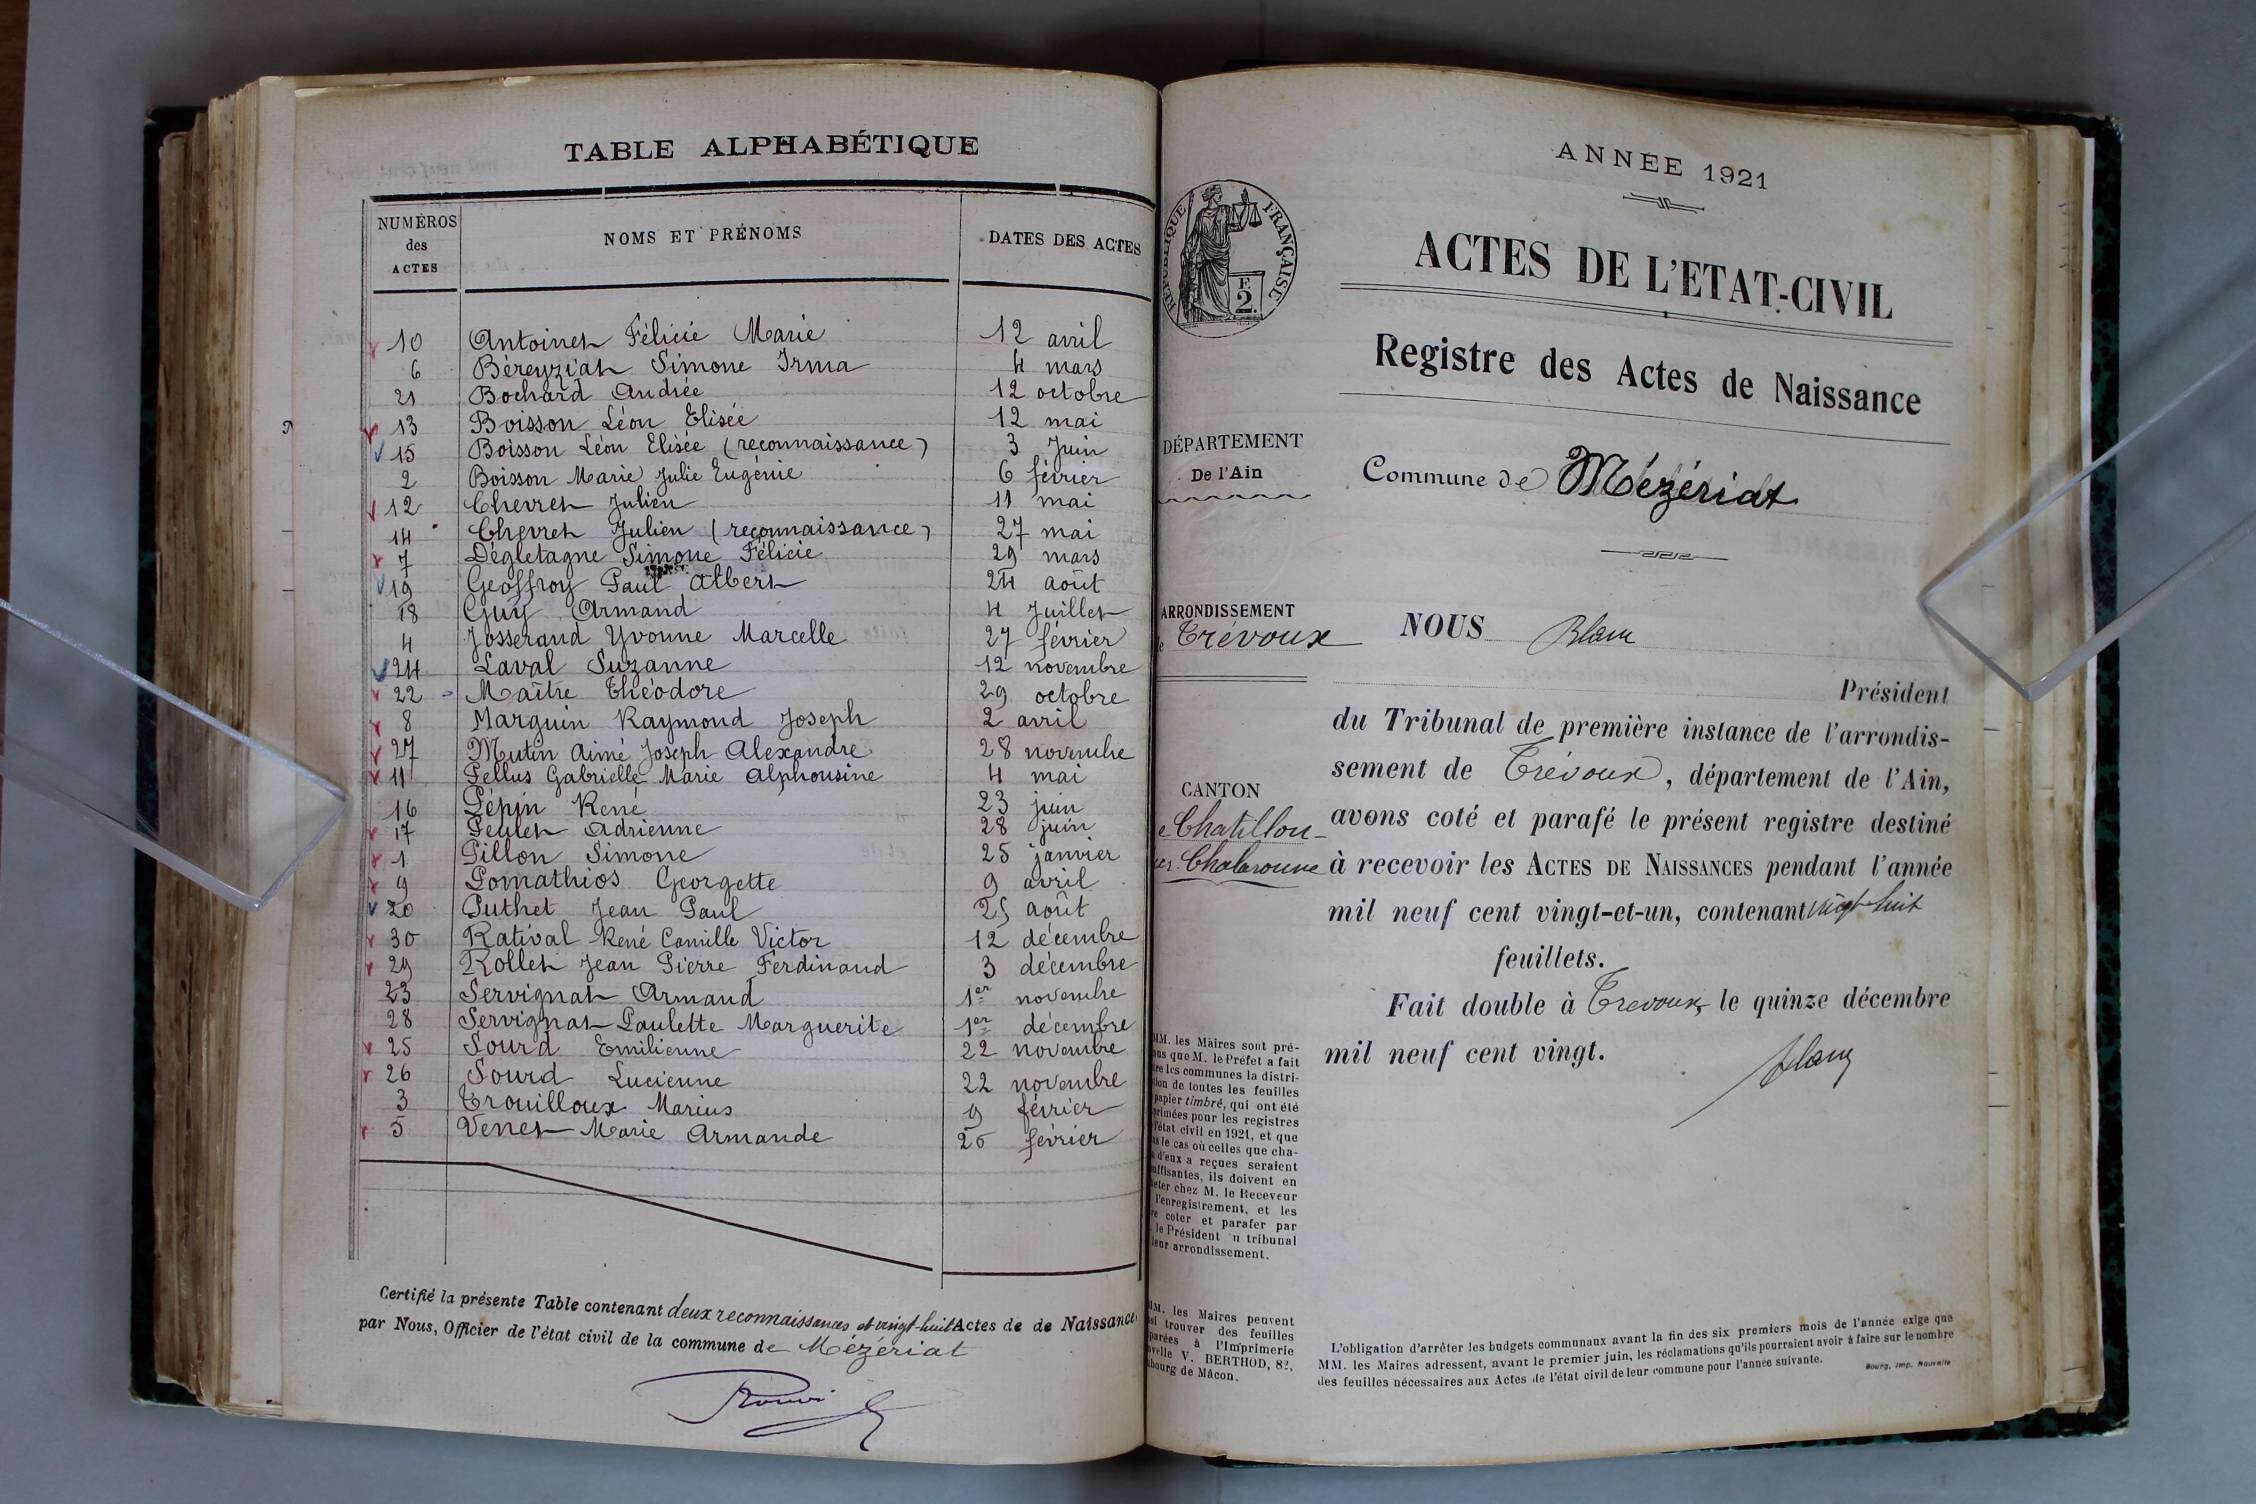 TABLE ALPHABÉTIQUE
NUMÉROS des ACTES | NOMS ET PRÉNOMS | DATES DES ACTES
10 Antoinet Félicie Marie 12 avril
6 Béreyziat Simone Irma 4 mars
21 Bochard Andrée 12 octobre
13 Boisson Léon Elisée 12 mai
15 Boisson Léon Elisée (reconnaissance) 3 Juin
2 Boisson Marie Julie Eugénie 6 février
12 Chevret Julien 11 mai
14 Chevret Julien (reconnaissance) 27 mai
7 Dégletagne Simone Félicie 29 mars
19 Geoffroy Paul Albert 24 août
18 Guy Armand 4 Juillet
4 Josserand Yvonne Marcelle 27 février
24 Laval Suzanne 12 novembre
22 Maître Théodore 29 octobre
8 Marguin Raymond Joseph 2 avril
27 Mutin Aimé Joseph Alexandre 28 novembre
11 Pellus Gabrielle Marie Alphonsine 4 mai
16 Pépin René 23 juin
17 Peulet Adrienne 28 juin
1 Pillon Simone 25 janvier
9 Pomathios Georgette 9 avril
20 Puthet Jean Paul 25 août
30 Ratival René Camille Victor 12 décembre
29 Rollet Jean Pierre Ferdinand 3 décembre
23 Servignat Armand 1er novembre
28 Servignat Paulette Marguerite 1er décembre
25 Sourd Emilienne 22 novembre
26 Sourd Lucienne 22 novembre
3 Trouilloux Marius 9 février
5 Venet Marie Armande 26 février
Certifié la présente Table contenant deux reconnaissances et vingt-huit Actes de de Naissance
par Nous, Officier de l'état civil de la commune de Mézériat
RÉPUBLIQUE FRANÇAISE
F.
2.
DÉPARTEMENT
De l'Ain
ARRONDISSEMENT
Trévoux
CANTON
Chatillon-
Chalaronne
MM. les Maires sont pré-
que M. le Préfet a fait
les communes la distri-
de toutes les feuilles
papier timbré, qui ont été
primées pour les registres
l'état civil en 1921, et que
le cas où celles que cha-
d'eux a reçues seraient
insuffisantes, ils doivent en
chez M. le Receveur
l'enregistrement, et les
coter et parafer par
le Président tribunal
leur arrondissement.
MM. les Maires peuvent
trouver des feuilles
à l'Imprimerie
V. BERTHOD, 82,
de Mâcon.
ANNÉE 1921
ACTES DE L'ETAT-CIVIL
Registre des Actes de Naissance
Commune de Mézériat
NOUS Blanc
Président
du Tribunal de première instance de l'arrondis-
sement de Trévoux, département de l'Ain,
avons coté et parafé le présent registre destiné
à recevoir les ACTES DE NAISSANCES pendant l'année
mil neuf cent vingt-et-un, contenant vingt huit
feuillets.
Fait double à Trévoux, le quinze décembre
mil neuf cent vingt.
Blanc
L'obligation d'arrêter les budgets communaux avant la fin des six premiers mois de l'année exige que
MM. les Maires adressent, avant le premier juin, les réclamations qu'ils pourraient avoir à faire sur le nombre
des feuilles nécessaires aux Actes de l'état civil de leur commune pour l'année suivante.
Bourg, Imp. Nouvelle